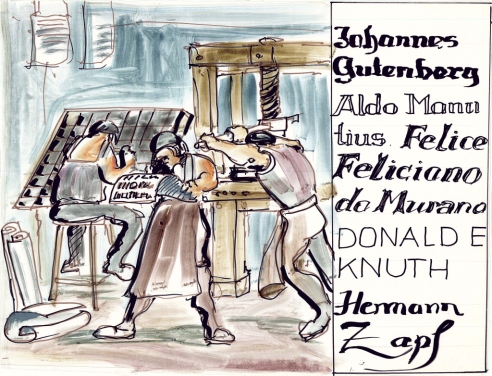 Johannes
Gutenberg
Aldo Manu
tius Felice
Feliciano
da Murano
DONALD E
KNUTH
Hermann
Zapf